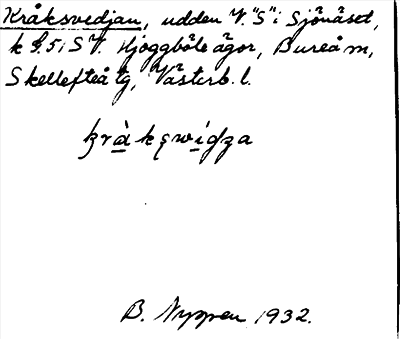 Kråksvedjan, udden V. "S" i Sjönäset,
k. 9.5; S V. Hjoggböle ägor, Bureå m,
Skellefteå tg, Västerb. l.
B. Nyppen 1932.